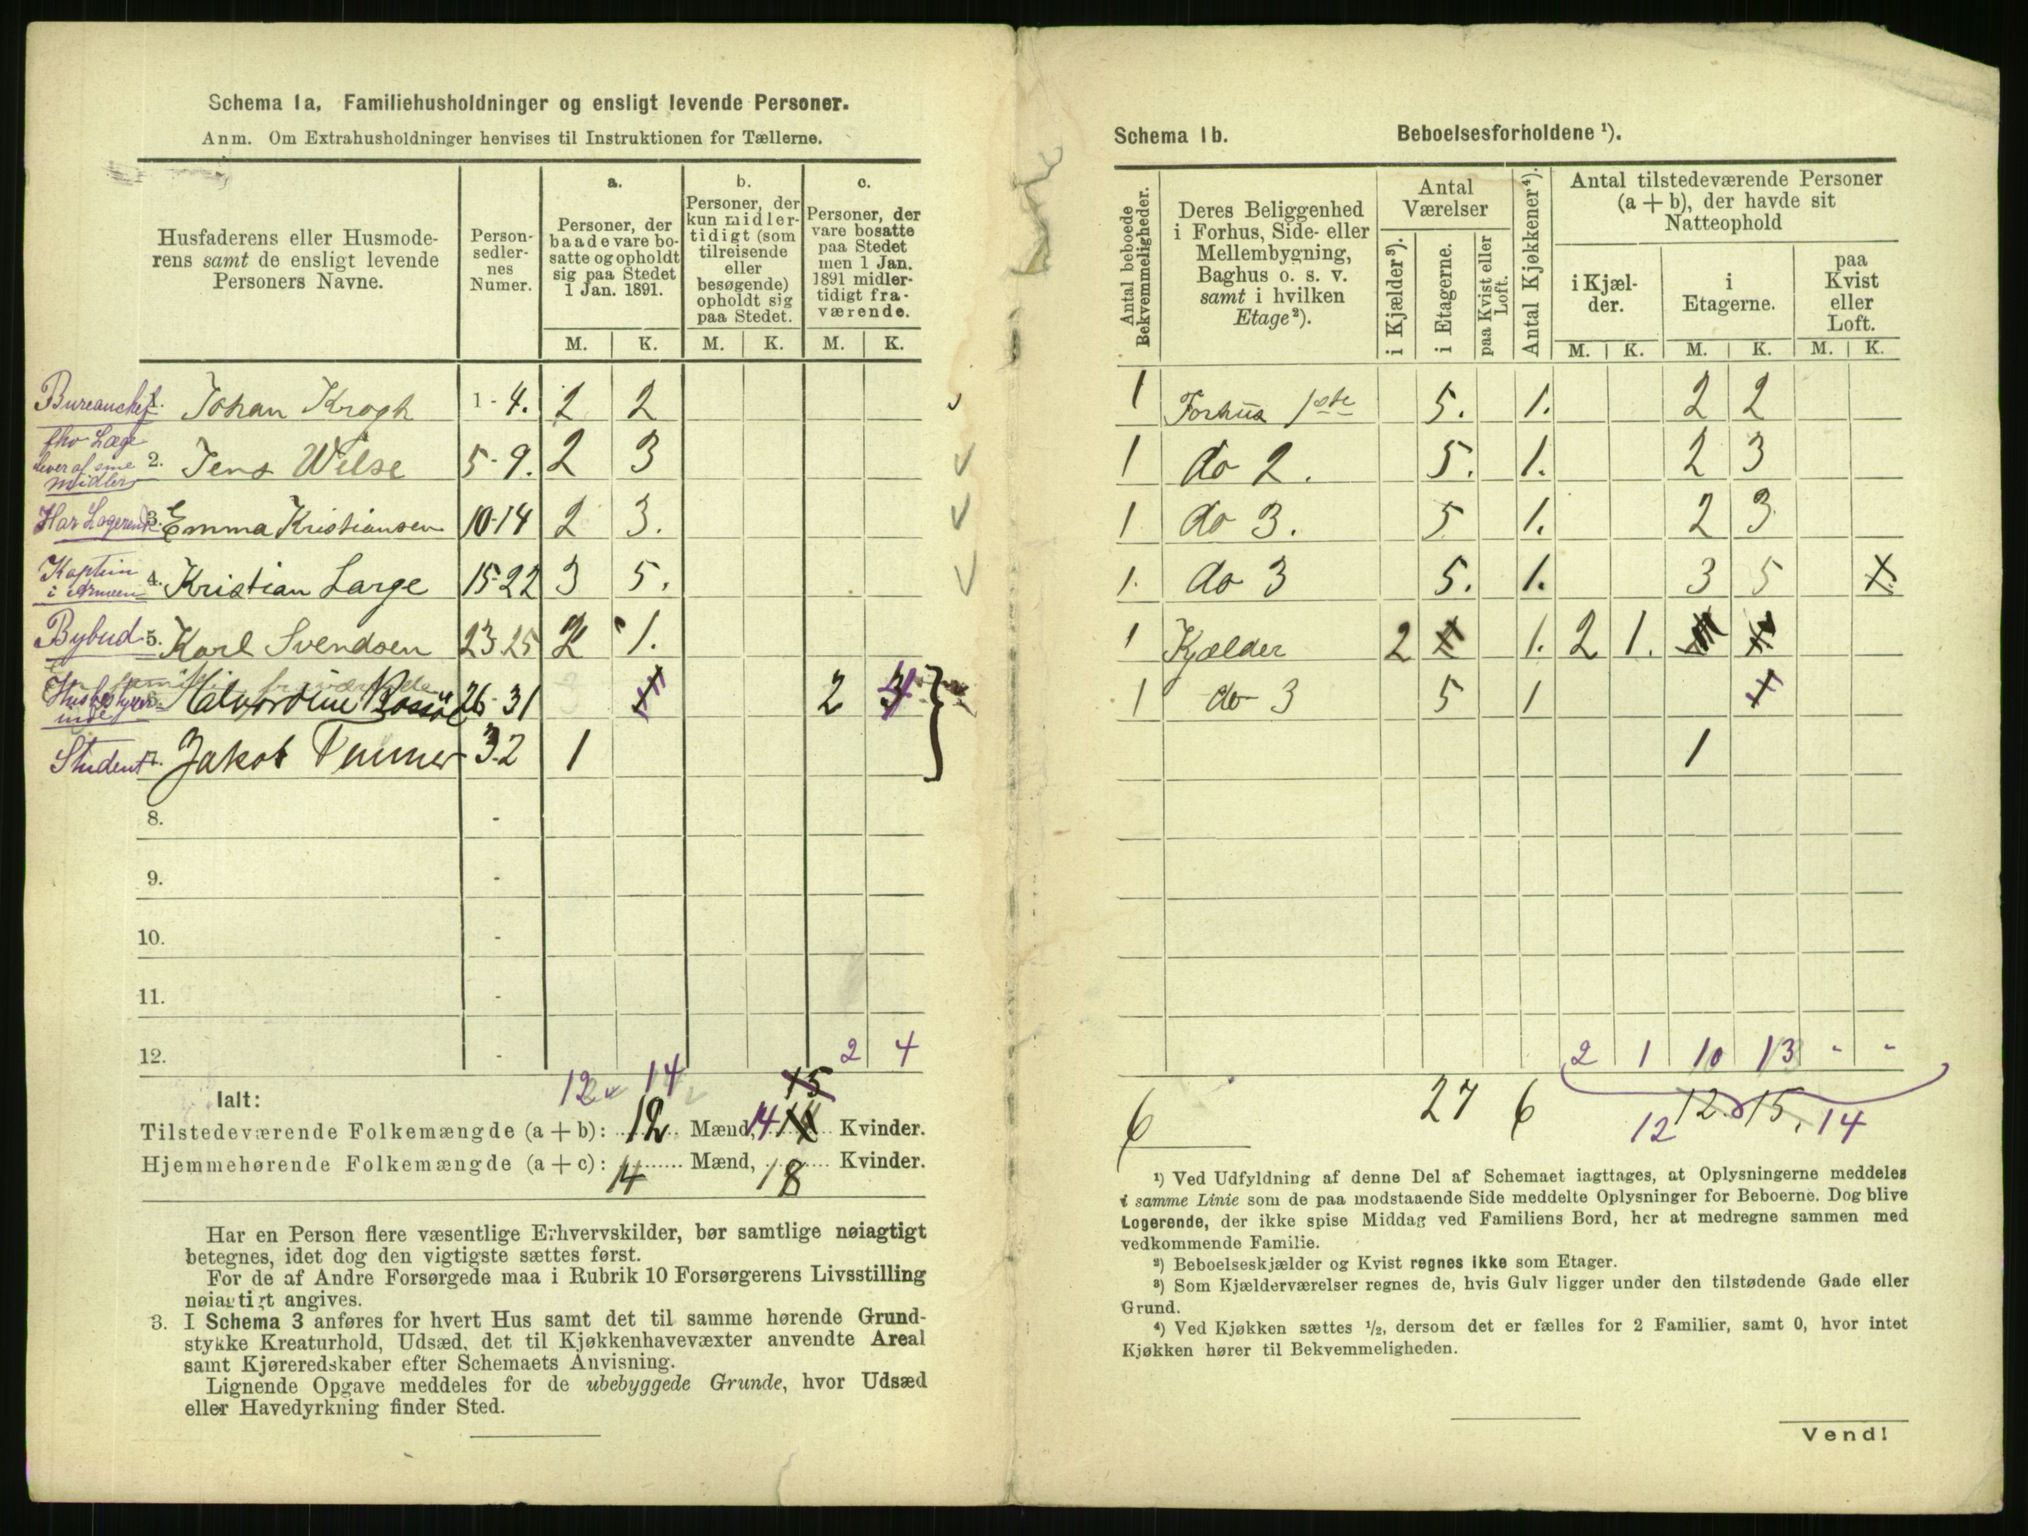 Schema 1a. Familiehusholdninger og ensligt levende Personer.
Anm. Om Extrahusholdninger henvises til Instruktionen for Tællerne.
Husfaderens eller Husmode-
rens samt de ensligt levende
Personers Navne.
Person-
sedler-
nes
Numer.
a.
Personer, der
baade vare bo-
satte og opholdt
sig paa Stedet
1 Jan. 1891.
b.
Personer, der
kun midler-
tidigt (som
tilreisende
eller
besøgende)
opholdt sig
paa Stedet.
c.
Personer, der
vare bosatte
paa Stedet
men 1 Jan.
1891 midler-
tidigt fra-
værende.
M. K. M. K. M. K.
Bureauchef 1. Johan Krogh 1-4. 2 2
fhv Læge
lever af sine
midler 2. Jens Wilse 5-9. 2 3
Har Logerende 3. Emma Kristiansen 10-14 2 3.
Kaptein
i Armeen 4. Kristian Large 15-22 3 5.
Bybud 5. Karl Svendsen 23-25 2 1.
26-31 2
Student 7. Jakob 32 1
8. -
9. -
10. -
11. -
12. - 2 4
12 14
15
Ialt:
Tilstedeværende Folkemængde (a + b): 12 Mænd, 14 Kvinder.
Hjemmehørende Folkemængde (a + c): 14 Mænd, 18 Kvinder.
Har en Person flere væsentlige Erhvervskilder, bør samtlige nøiagtigt
betegnes, idet dog den vigtigste sættes først.
For de af Andre Forsørgede maa i Rubrik 10 Forsørgerens Livsstilling
nøiagtigt angives.
3. I Schema 3 anføres for hvert Hus samt det til samme hørende Grund-
stykke Kreaturhold, Udsæd, det til Kjøkkenhavevæxter anvendte Areal
samt Kjøreredskaber efter Schemaets Anvisning.
Lignende Opgave meddeles for de ubebyggede Grunde, hvor Udsæd
eller Havedyrkning finder Sted.
Schema 1b. Beboelsesforholdene ¹).
Antal beboede
Bekvemmeligheder.
Deres Beliggenhed
i Forhus, Side- eller
Mellembygning,
Baghus o. s. v.
samt i hvilken
Etage²).
Antal
Værelser
i Kjælder³).
i Etagerne.
paa Kvist eller
Loft.
Antal Kjøkkener⁴).
Antal tilstedeværende Personer
(a + b), der havde sit
Natteophold
i Kjæl-
der.
i
Etagerne.
paa
Kvist
eller
Loft.
M. K. M. K. M. K.
1 Forhus 1ste 5. 1. 2 2
1 do 2. 5. 1. 2 3
1 do 3. 5 1. 2 3
1. do 3 5. 1. 3 5
1 Kjælder 2 1. 2 1.
1 do 3 5 1
1
2 1 10 13 - -
6 27 6 12 15.
12 14
¹) Ved Udfyldning af denne Del af Schemaet iagttages, at Oplysningerne meddeles
i samme Linie som de paa modstaaende Side meddelte Oplysninger for Beboerne. Dog blive
Logerende, der ikke spise Middag ved Familiens Bord, her at medregne sammen med
vedkommende Familie.
²) Beboelseskjælder og Kvist regnes ikke som Etager.
³) Som Kjælderværelser regnes de, hvis Gulv ligger under den tilstødende Gade eller
Grund.
⁴) Ved Kjøkken sættes ½, dersom det er fælles for 2 Familier, samt 0, hvor intet
Kjøkken hører til Bekvemmeligheden.
Vend!